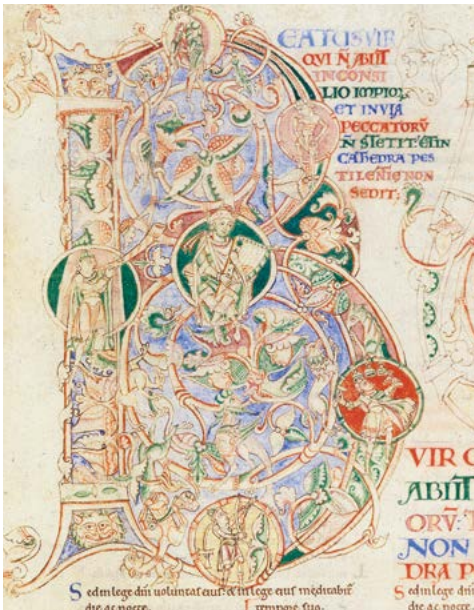 EATUSVIR
QUI ÑABIIT
INCONSI
LIO IMPIOꝜ,
ET INVIA
PECCATORŪ
Ñ STETIT: ET IN
CAThEDRA PES
TILENTIE NON
SEDIT;
VIR
ABIIT
ORŪ:
NON
DRA P
S ed in lege dñi voluntas eius: & in lege eius meditabit̄
die ac nocte.
tempore suo.
S ed in lege dñi
die ac nocte.